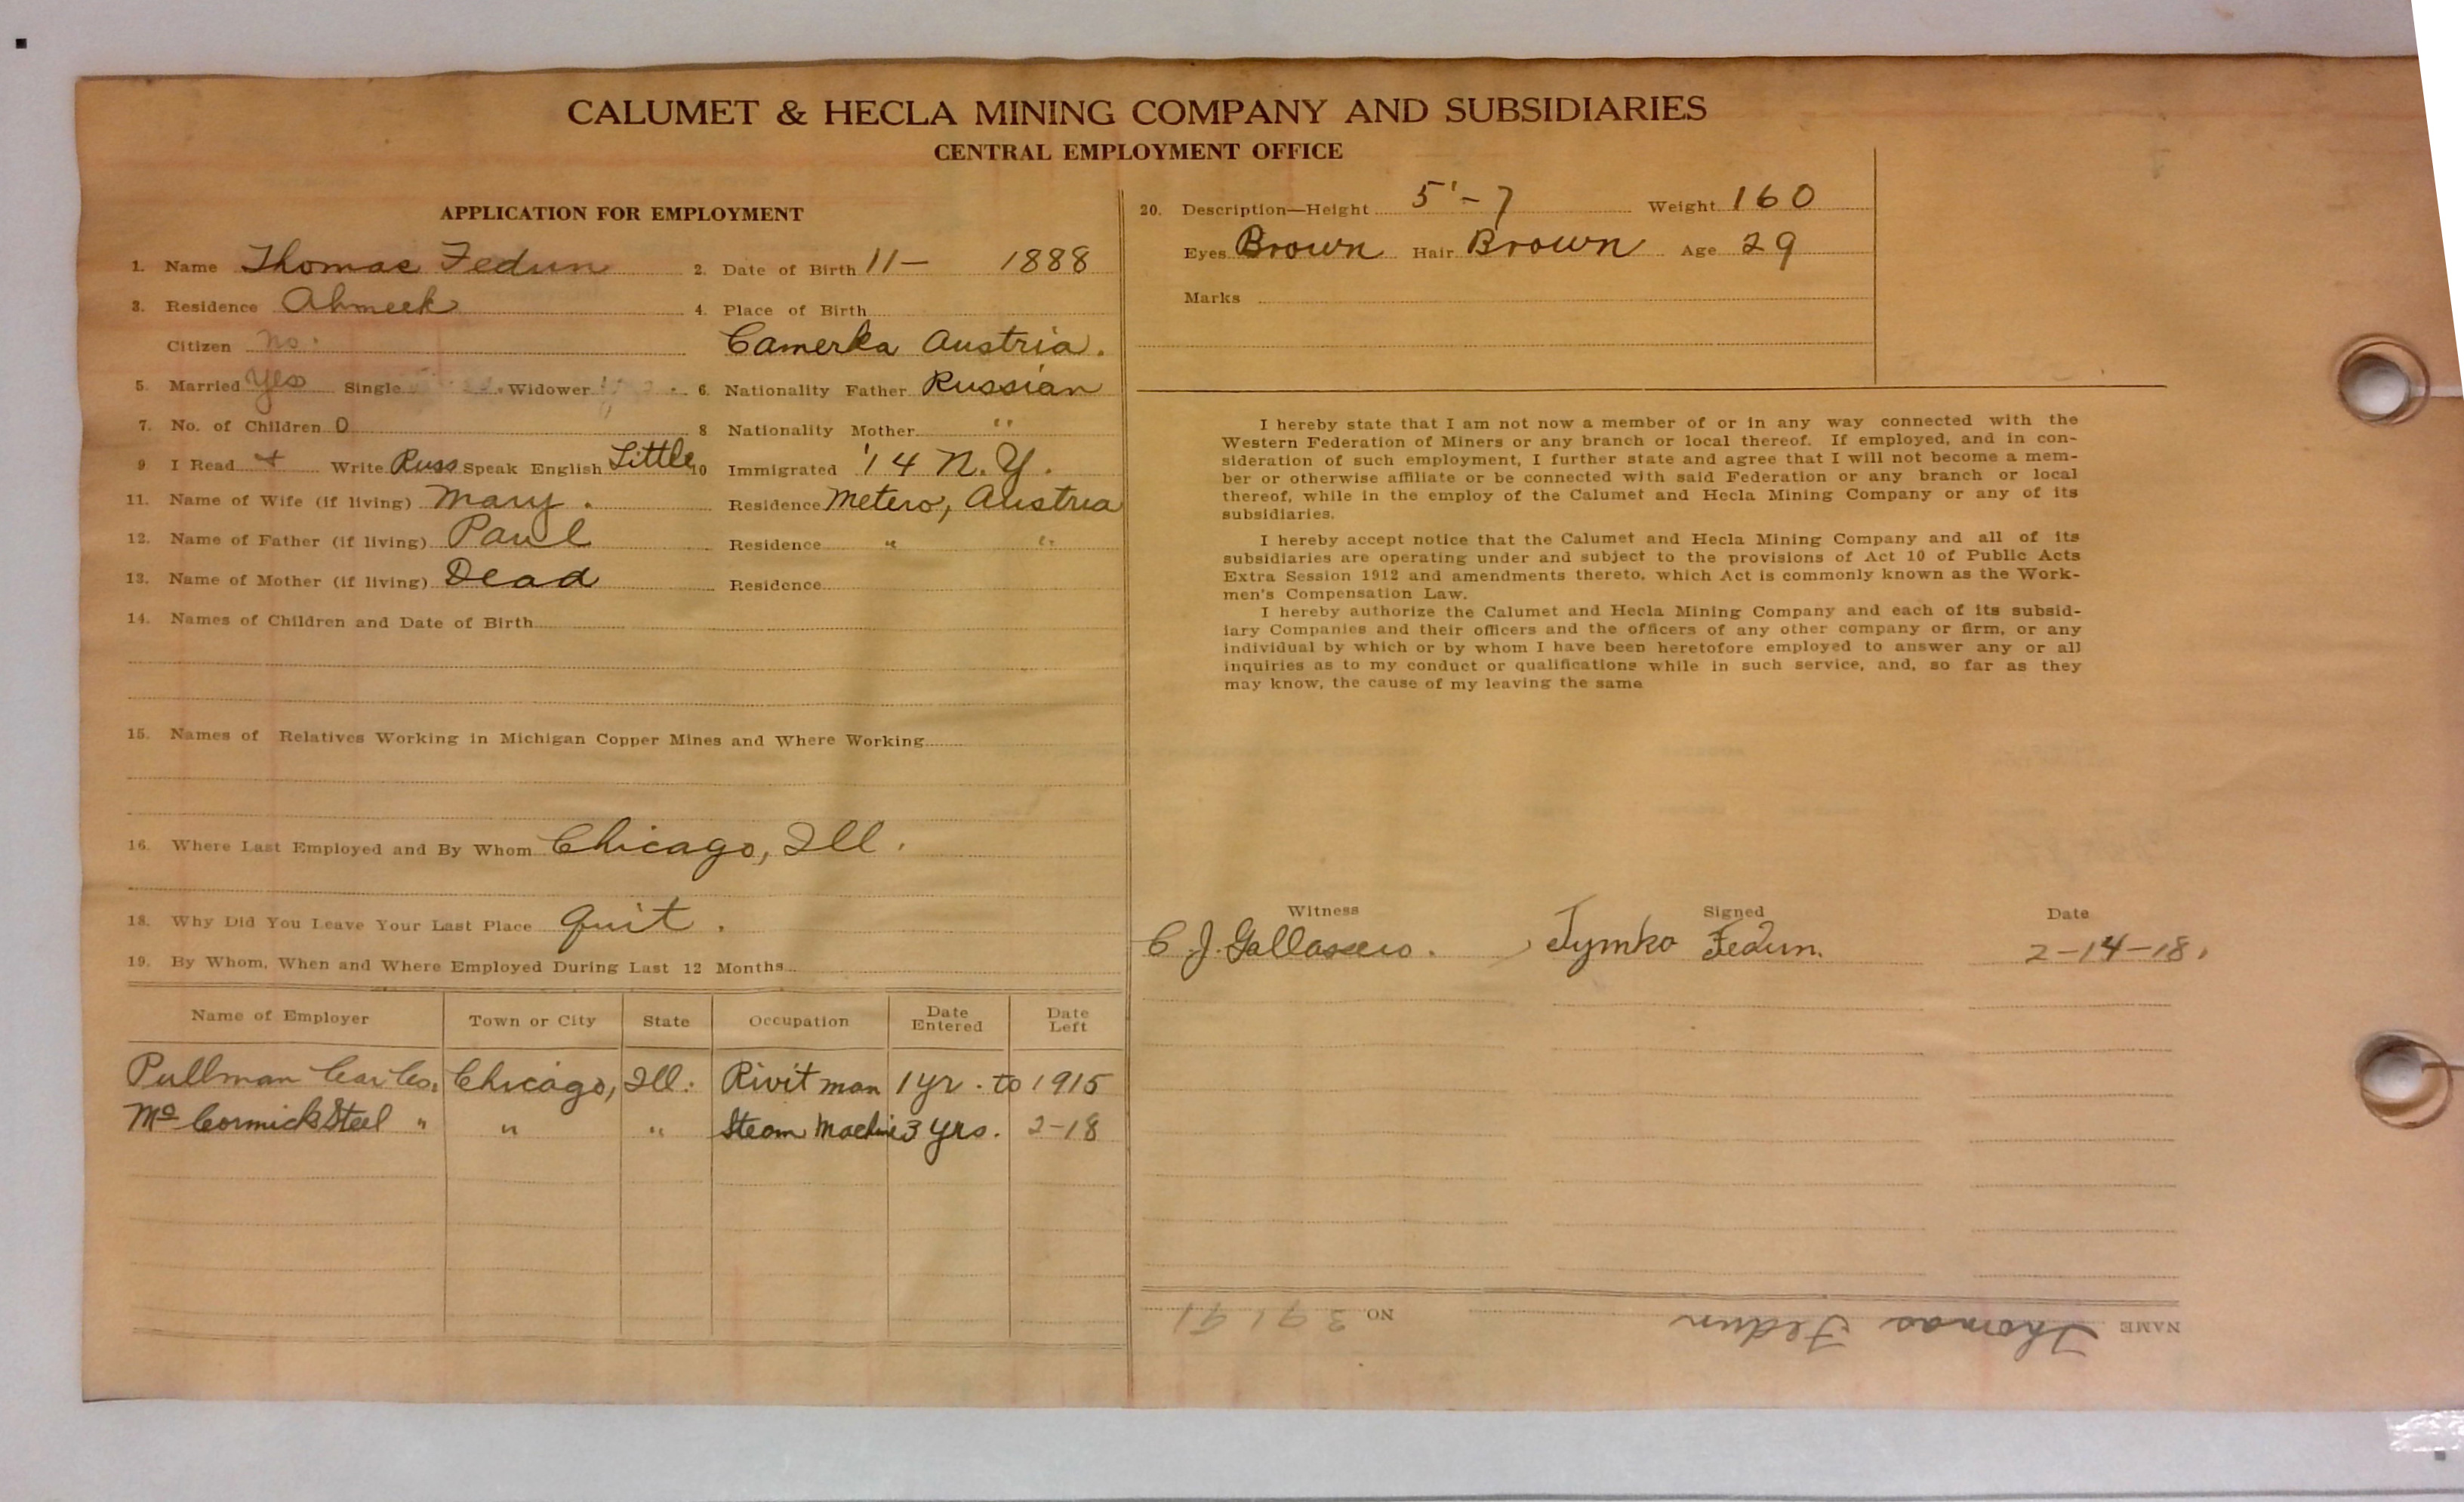 CALUMET & HECLA MINING COMPANY AND SUBSIDIARIES
CENTRAL EMPLOYMENT OFFICE
APPLICATION FOR EMPLOYMENT
1. Name Thomas Fedun 2. Date of Birth 11- 1888
3. Residence Ahmeek 4. Place of Birth
Citizen no. Camerka Austria.
5. Married Yes Single Widower 6. Nationality Father Russian
7. No. of Children 0 8 Nationality Mother "
9 I Read + Write Russ Speak English Little 10 Immigrated '14 N.Y.
11. Name of Wife (if living) Mary. Residence Metero, Austria
12. Name of Father (if living) Paul Residence " "
13. Name of Mother (if living) Dead Residence
14. Names of Children and Date of Birth
15. Names of Relatives Working in Michigan Copper Mines and Where Working
16. Where Last Employed and By Whom Chicago, Ill.
18. Why Did You Leave Your Last Place Quit.
19. By Whom, When and Where Employed During Last 12 Months
Name of Employer Town or City State Occupation Date Entered Date Left
Pullman Car Co. Chicago, Ill. Rivit man 1 yr. to 1915
Mc Cormick Steel " " " Steam Machine 3 yrs. 2-18
20. Description—Height 5'-7 Weight 160
Eyes Brown Hair Brown Age 29
Marks
I hereby state that I am not now a member of or in any way connected with the
Western Federation of Miners or any branch or local thereof. If employed, and in con-
sideration of such employment, I further state and agree that I will not become a mem-
ber or otherwise affiliate or be connected with said Federation or any branch or local
thereof, while in the employ of the Calumet and Hecla Mining Company or any of its
subsidiaries.
I hereby accept notice that the Calumet and Hecla Mining Company and all of its
subsidiaries are operating under and subject to the provisions of Act 10 of Public Acts
Extra Session 1912 and amendments thereto, which Act is commonly known as the Work-
men's Compensation Law.
I hereby authorize the Calumet and Hecla Mining Company and each of its subsid-
iary Companies and their officers and the officers of any other company or firm, or any
individual by which or by whom I have been heretofore employed to answer any or all
inquiries as to my conduct or qualifications while in such service, and, so far as they
may know, the cause of my leaving the same
Witness Signed Date
C. J. Tymko Fedun. 2-14-18.
NAME Thomas Fedun NO.